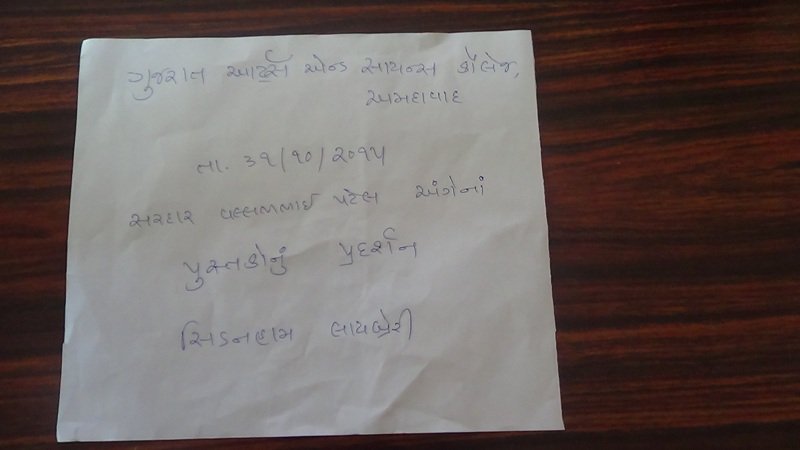 ગુજરાત આર્ટ્સ એન્ડ સાયન્સ કૉલેજ,
અમદાવાદ
તા. ૩૧/૧૦/૨૦૧૫
સરદાર વલ્લભભાઈ પટેલ અંગેનાં
પુસ્તકોનું પ્રદર્શન
સિડનહામ લાયબ્રેરી